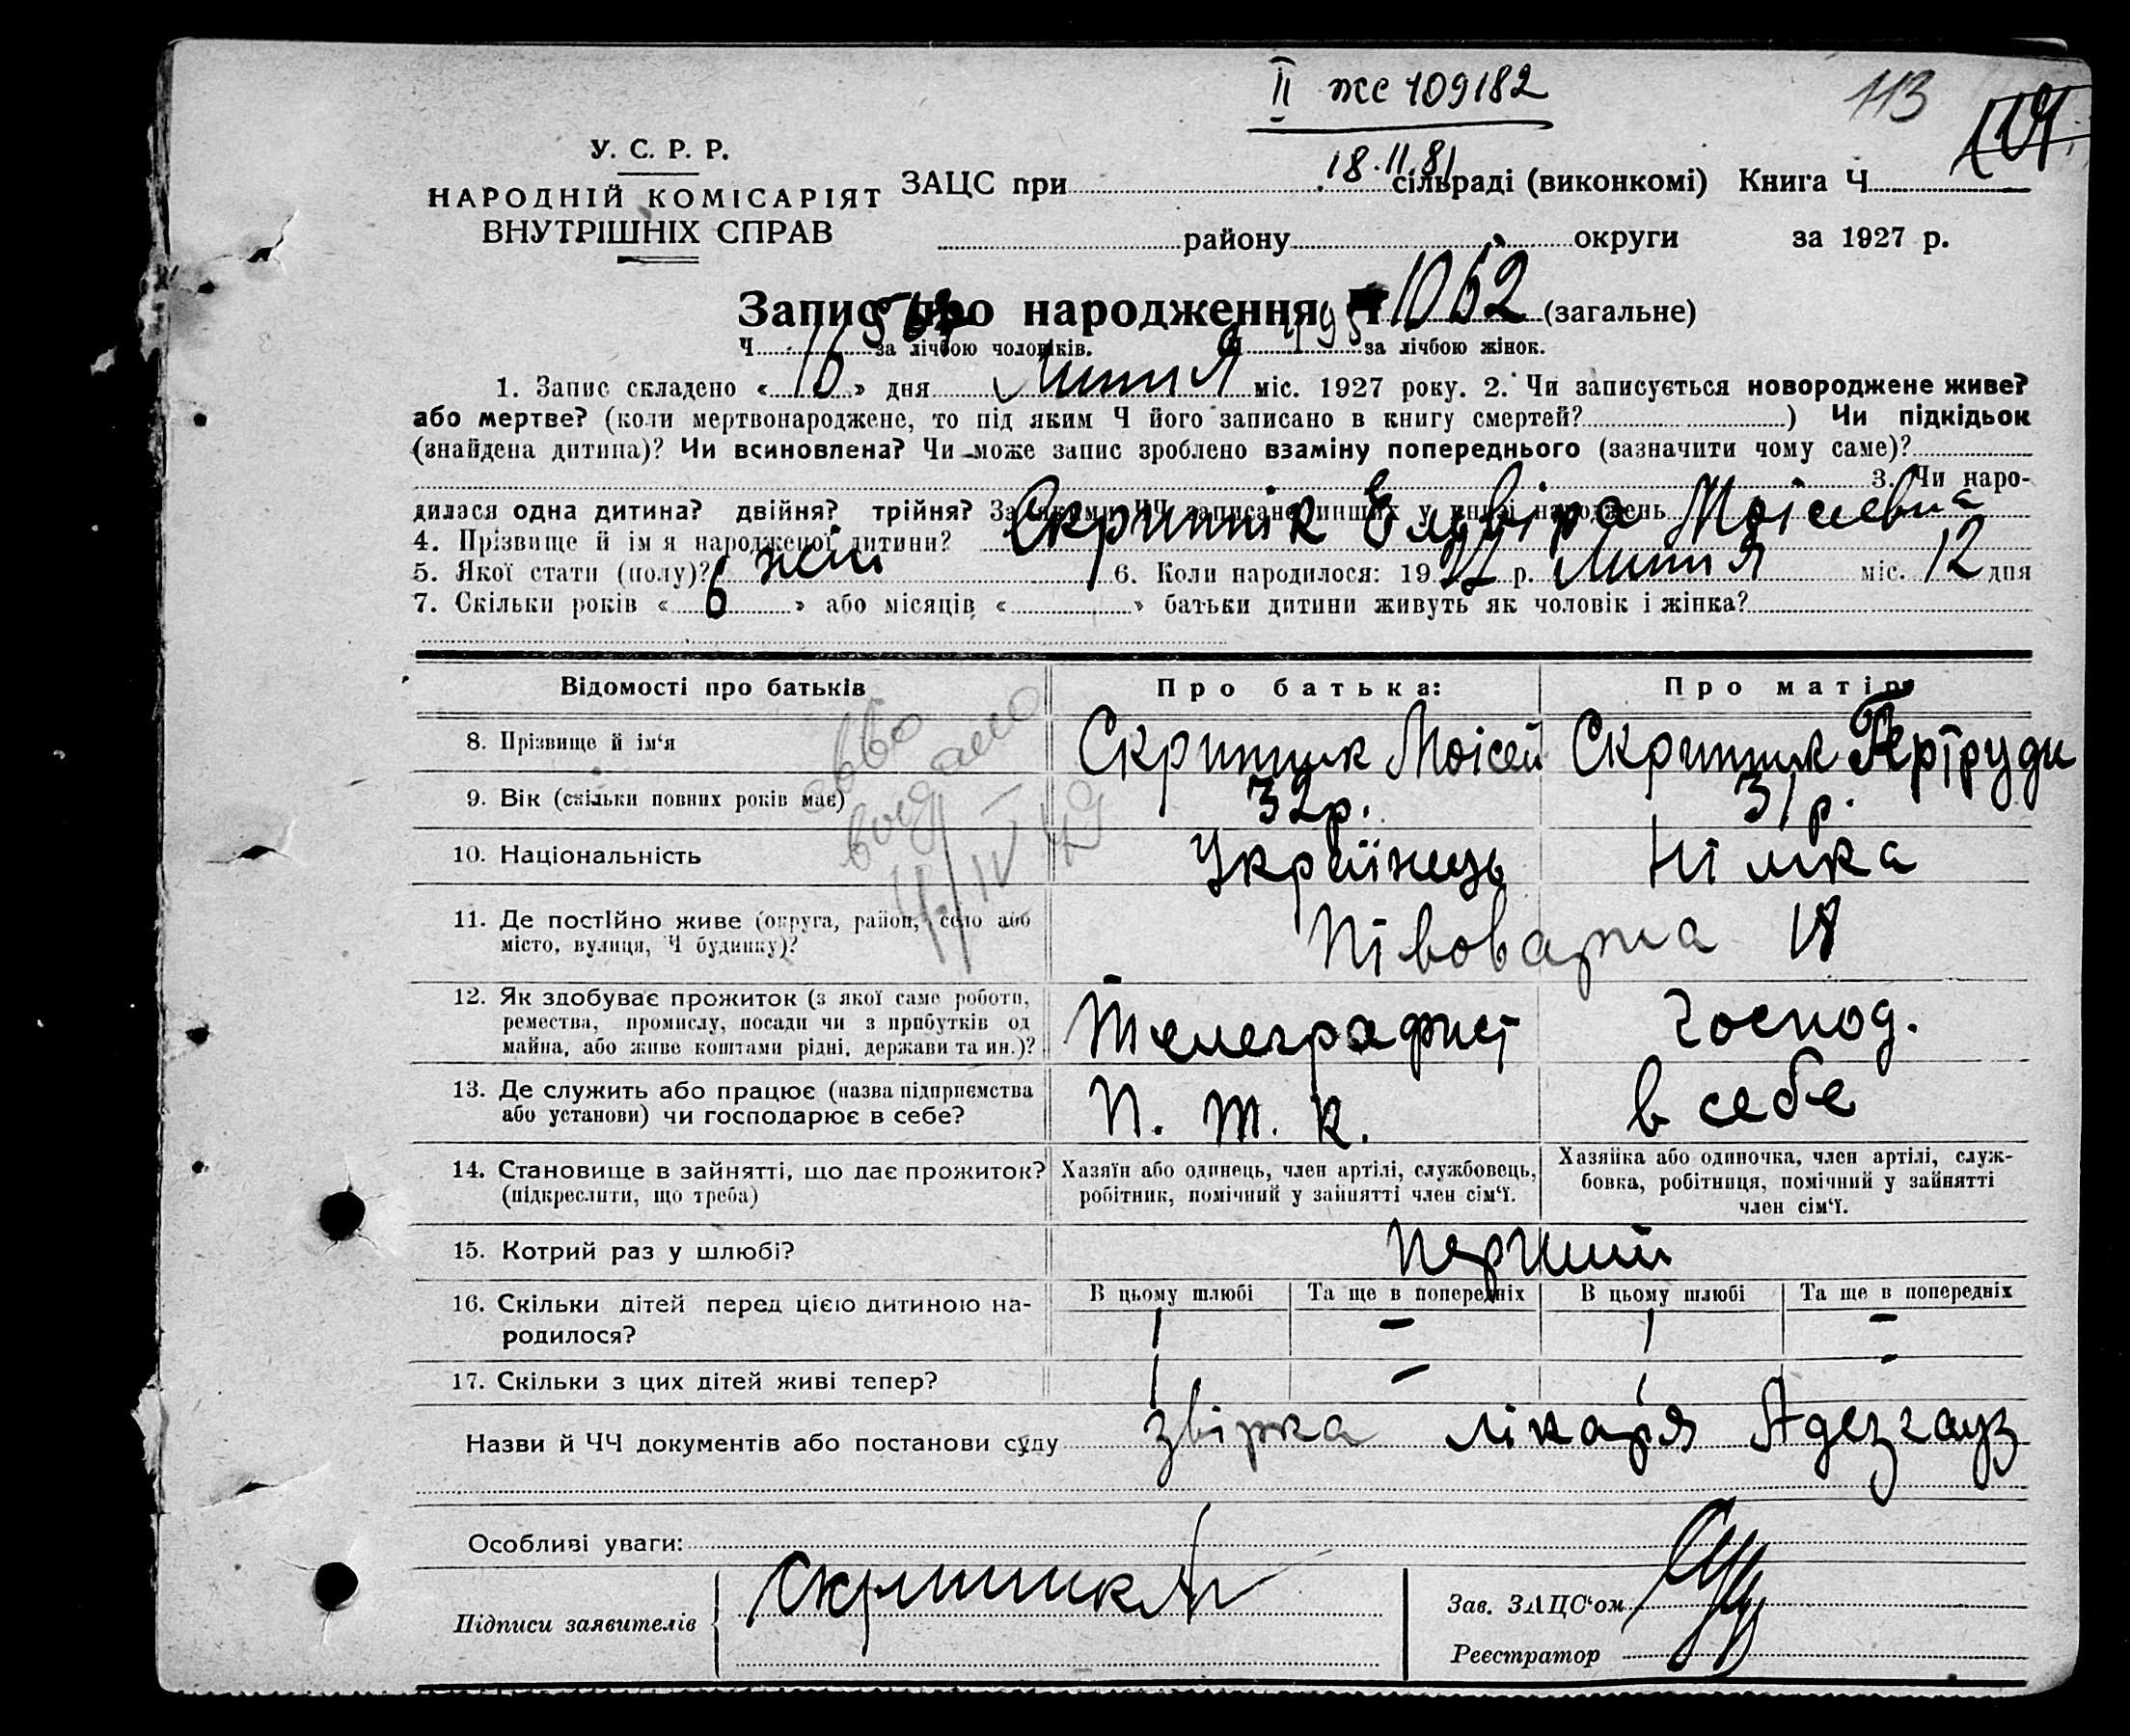 ІІ жс 109182
113
У. С. Р. Р.
18.11.81
ЗАЦС при сільраді (виконкомі) Книга Ч
НАРОДНІЙ КОМІСАРІЯТ
ВНУТРІШНІХ СПРАВ
району округи за 1927 р.
Запис про народження Ч 1062 (загальне)
Ч за лічбою чоловіків. Ч 495 за лічбою жінок.
1. Запис складено «16» дня Липня міс. 1927 року. 2. Чи записується новороджене живе?
або мертве? (коли мертвонароджене, то під яким Ч його записано в книгу смертей? ) Чи підкідьок
(знайдена дитина)? Чи всиновлена? Чи може запис зроблено взаміну попереднього (зазначити чому саме)?
3. Чи наро-
дилася одна дитина? двійня? трійня? За якими ЧЧ записано инших у книзі народжень
4. Прізвище й ім я народженої дитини? Скрипнік Ельвіра Моісеевна
5. Якої стати (полу)? жін 6. Коли народилося: 1927 р. Липня міс. 12 дня
7. Скільки років «6» або місяців « » батьки дитини живуть як чоловік і жінка?
Відомості про батьків Про батька: Про матір:
8. Прізвище й ім‘я Скрипник Моісей Скрипник Гертруди
9. Вік (скільки повних років має) 32р. 31р.
10. Національність Українець Німка
11. Де постійно живе (округа, район, село або
місто, вулиця, Ч будинку)? Півоварна
12. Як здобуває прожиток (з якої саме роботи,
ремества, промислу, посади чи з прибутків од
майна, або живе коштами рідні, держави та ин.)? Телеграфист Господ.
13. Де служить або працює (назва підприємства
або установи) чи господарює в себе? П. Т. К. в себе
14. Становище в зайнятті, що дає прожиток?
(підкреслити, що треба)
Хазяїн або одинець, член артілі, службовець,
робітник, помічний у зайнятті член сім‘ї.
Хазяйка або одиночка, член артілі, служ-
бовка, робітниця, помічний у зайнятті
член сім‘ї.
15. Котрий раз у шлюбі? перший
16. Скільки дітей перед цією дитиною на-
родилося?
В цьому шлюбі Та ще в попередніх В цьому шлюбі Та ще в попередніх
1 – 1 –
17. Скільки з цих дітей живі тепер? 1 – 1 –
Назви й ЧЧ документів або постанови суду звірка лікаря Адезгауз
Особливі уваги:
Підписи заявителів Скрипник
Зав. ЗАЦС‘ом
Реєстратор